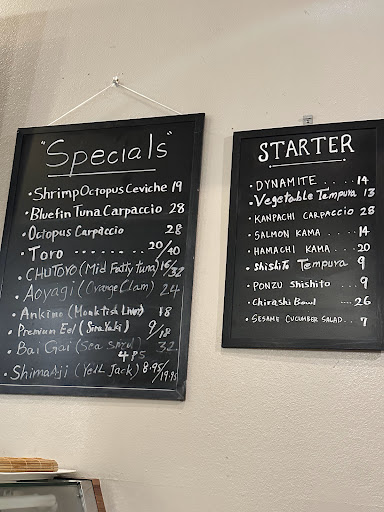 "Specials"
• Shrimp Octopus Ceviche 19
• Bluefin Tuna Carpaccio 28
• Octopus Carpaccio 28
• Toro .......... 20/40
• CHUTOYO (Mid Fatty tuna) 16/32
• Aoyagi (Orange Clam) 24
• Ankimo (Monktish Liver) 18
• Premium Eel (Sirayaki) 9/18
• Bai Gai (Sea Snail) 32
4 PS
• Shima Aji (Yell Jack) 8.95/19.95
STARTER
• DYNAMITE ..... 14
• Vegetable Tempura 13
• KANPACHI CARPACCIO 28
• SALMON KAMA .... 14
• HAMACHI KAMA .... 20
• Shishito Tempura 9
• PONZU Shishito .... 9
• Chirashi Bowl .... 26
• SESAME CUCUMBER SALAD .. 7